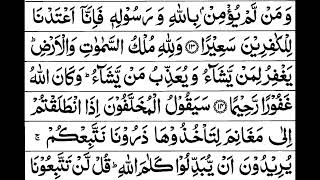 وَمَنْ لَّمْ يُؤْمِنْۢ بِاللّٰهِ وَ رَسُوْلِهٖ فَاِنَّاۤ اَعْتَدْنَا
لِلْكٰفِرِيْنَ سَعِيْرًا ۝۱۳ وَلِلّٰهِ مُلْكُ السَّمٰوٰتِ وَالْاَرْضِ ؕ
يَغْفِرُ لِمَنْ يَّشَآءُ وَ يُعَذِّبُ مَنْ يَّشَآءُ ؕ وَكَانَ اللّٰهُ
غَفُوْرًا رَّحِيْمًا ۝۱۴ سَيَقُوْلُ الْمُخَلَّفُوْنَ اِذَا انْطَلَقْتُمْ
اِلٰى مَغَانِمَ لِتَاْخُذُوْهَا ذَرُوْنَا نَتَّبِعْكُمْ ۚ
يُرِيْدُوْنَ اَنْ يُّبَدِّلُوْا كَلٰمَ اللّٰهِ ؕ قُلْ لَّنْ تَتَّبِعُوْنَا